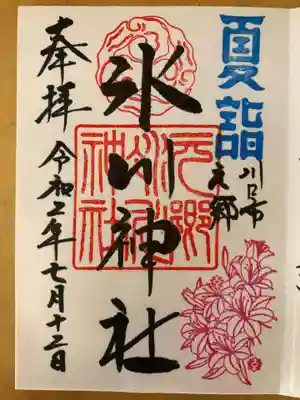 夏詣
川口市
元郷
氷川神社
元郷
氷川
神社
奉拝
令和二年七月十二日